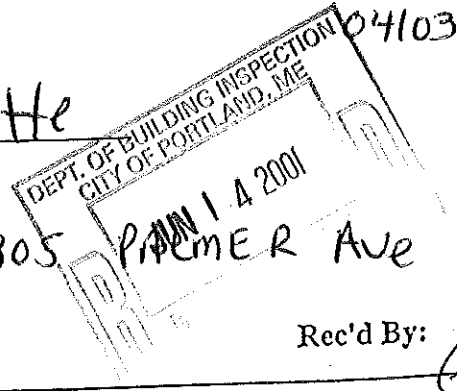 04103
tte
DEPT. OF BUILDING INSPECTION
CITY OF PORTLAND, ME
JUN 14 2001
805 PALMER Ave
Rec'd By: